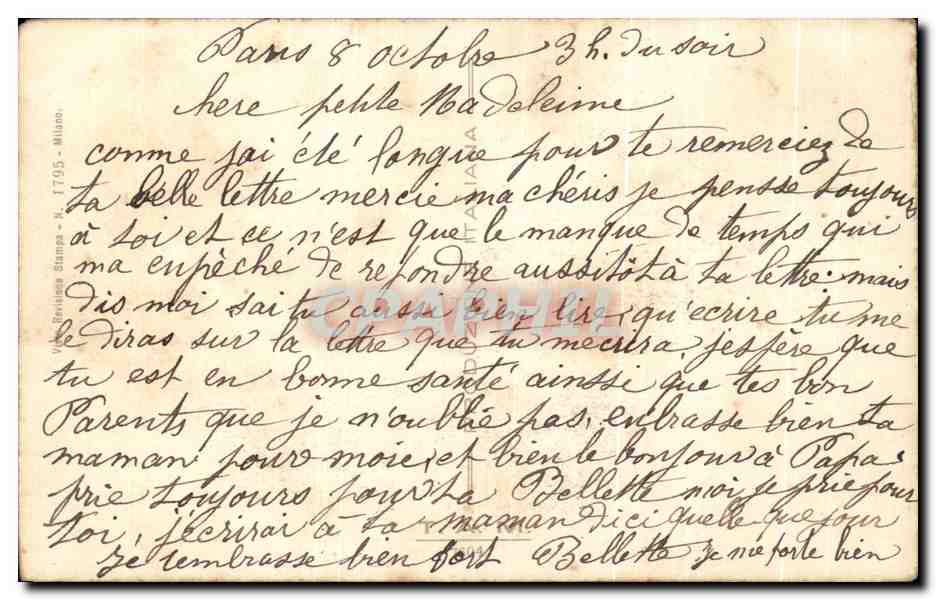 Paris 8 octobre 3 h. du soir
here petite Madeleine
comme jai été longue pour te remerciez de
ta belle lettre mercie ma chéris je pensse toujours
à toi et ce n'est que le manque de temps qui
ma enpèché de repondre aussitôt à ta lettre. mais
dis moi sai tu aussi bien lire, qu'ecrire tu me
le diras sur la lettre que tu mecrira, jespère que
tu est en bonne santé ainssi que tes bon
Parents que je n'oublie pas, enbrasse bien ta
maman pour moie, et bien le bonjour à Papa.
prie toujours pour ta Bellette moi je prie pour
toi, j'ecrirai à ta maman dici quelle que jour
je tembrasse bien fort Bellette je me porte bien
Visto Revisione Stampa - N. 1795 - Milano.
PRODUZIONE ITALIANA
CPARAMA